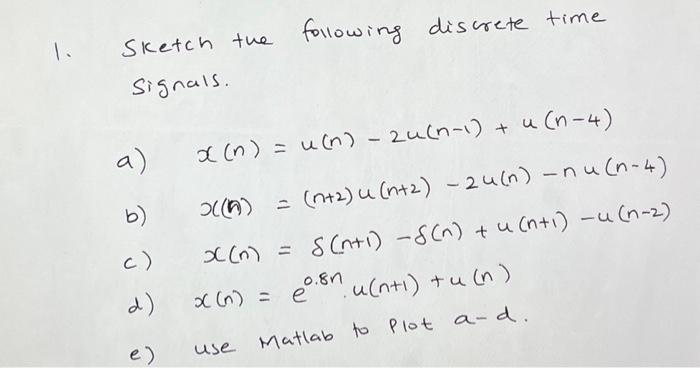 1. Sketch the following discrete time
signals.
a) x(n) = u(n) - 2u(n-1) + u(n-4)
b) x(n) = (n+2)u(n+2) - 2u(n) - nu(n-4)
c) x(n) = δ(n+1) - δ(n) + u(n+1) - u(n-2)
d) x(n) = e^0.8n . u(n+1) + u(n)
e) use Matlab to Plot a-d.